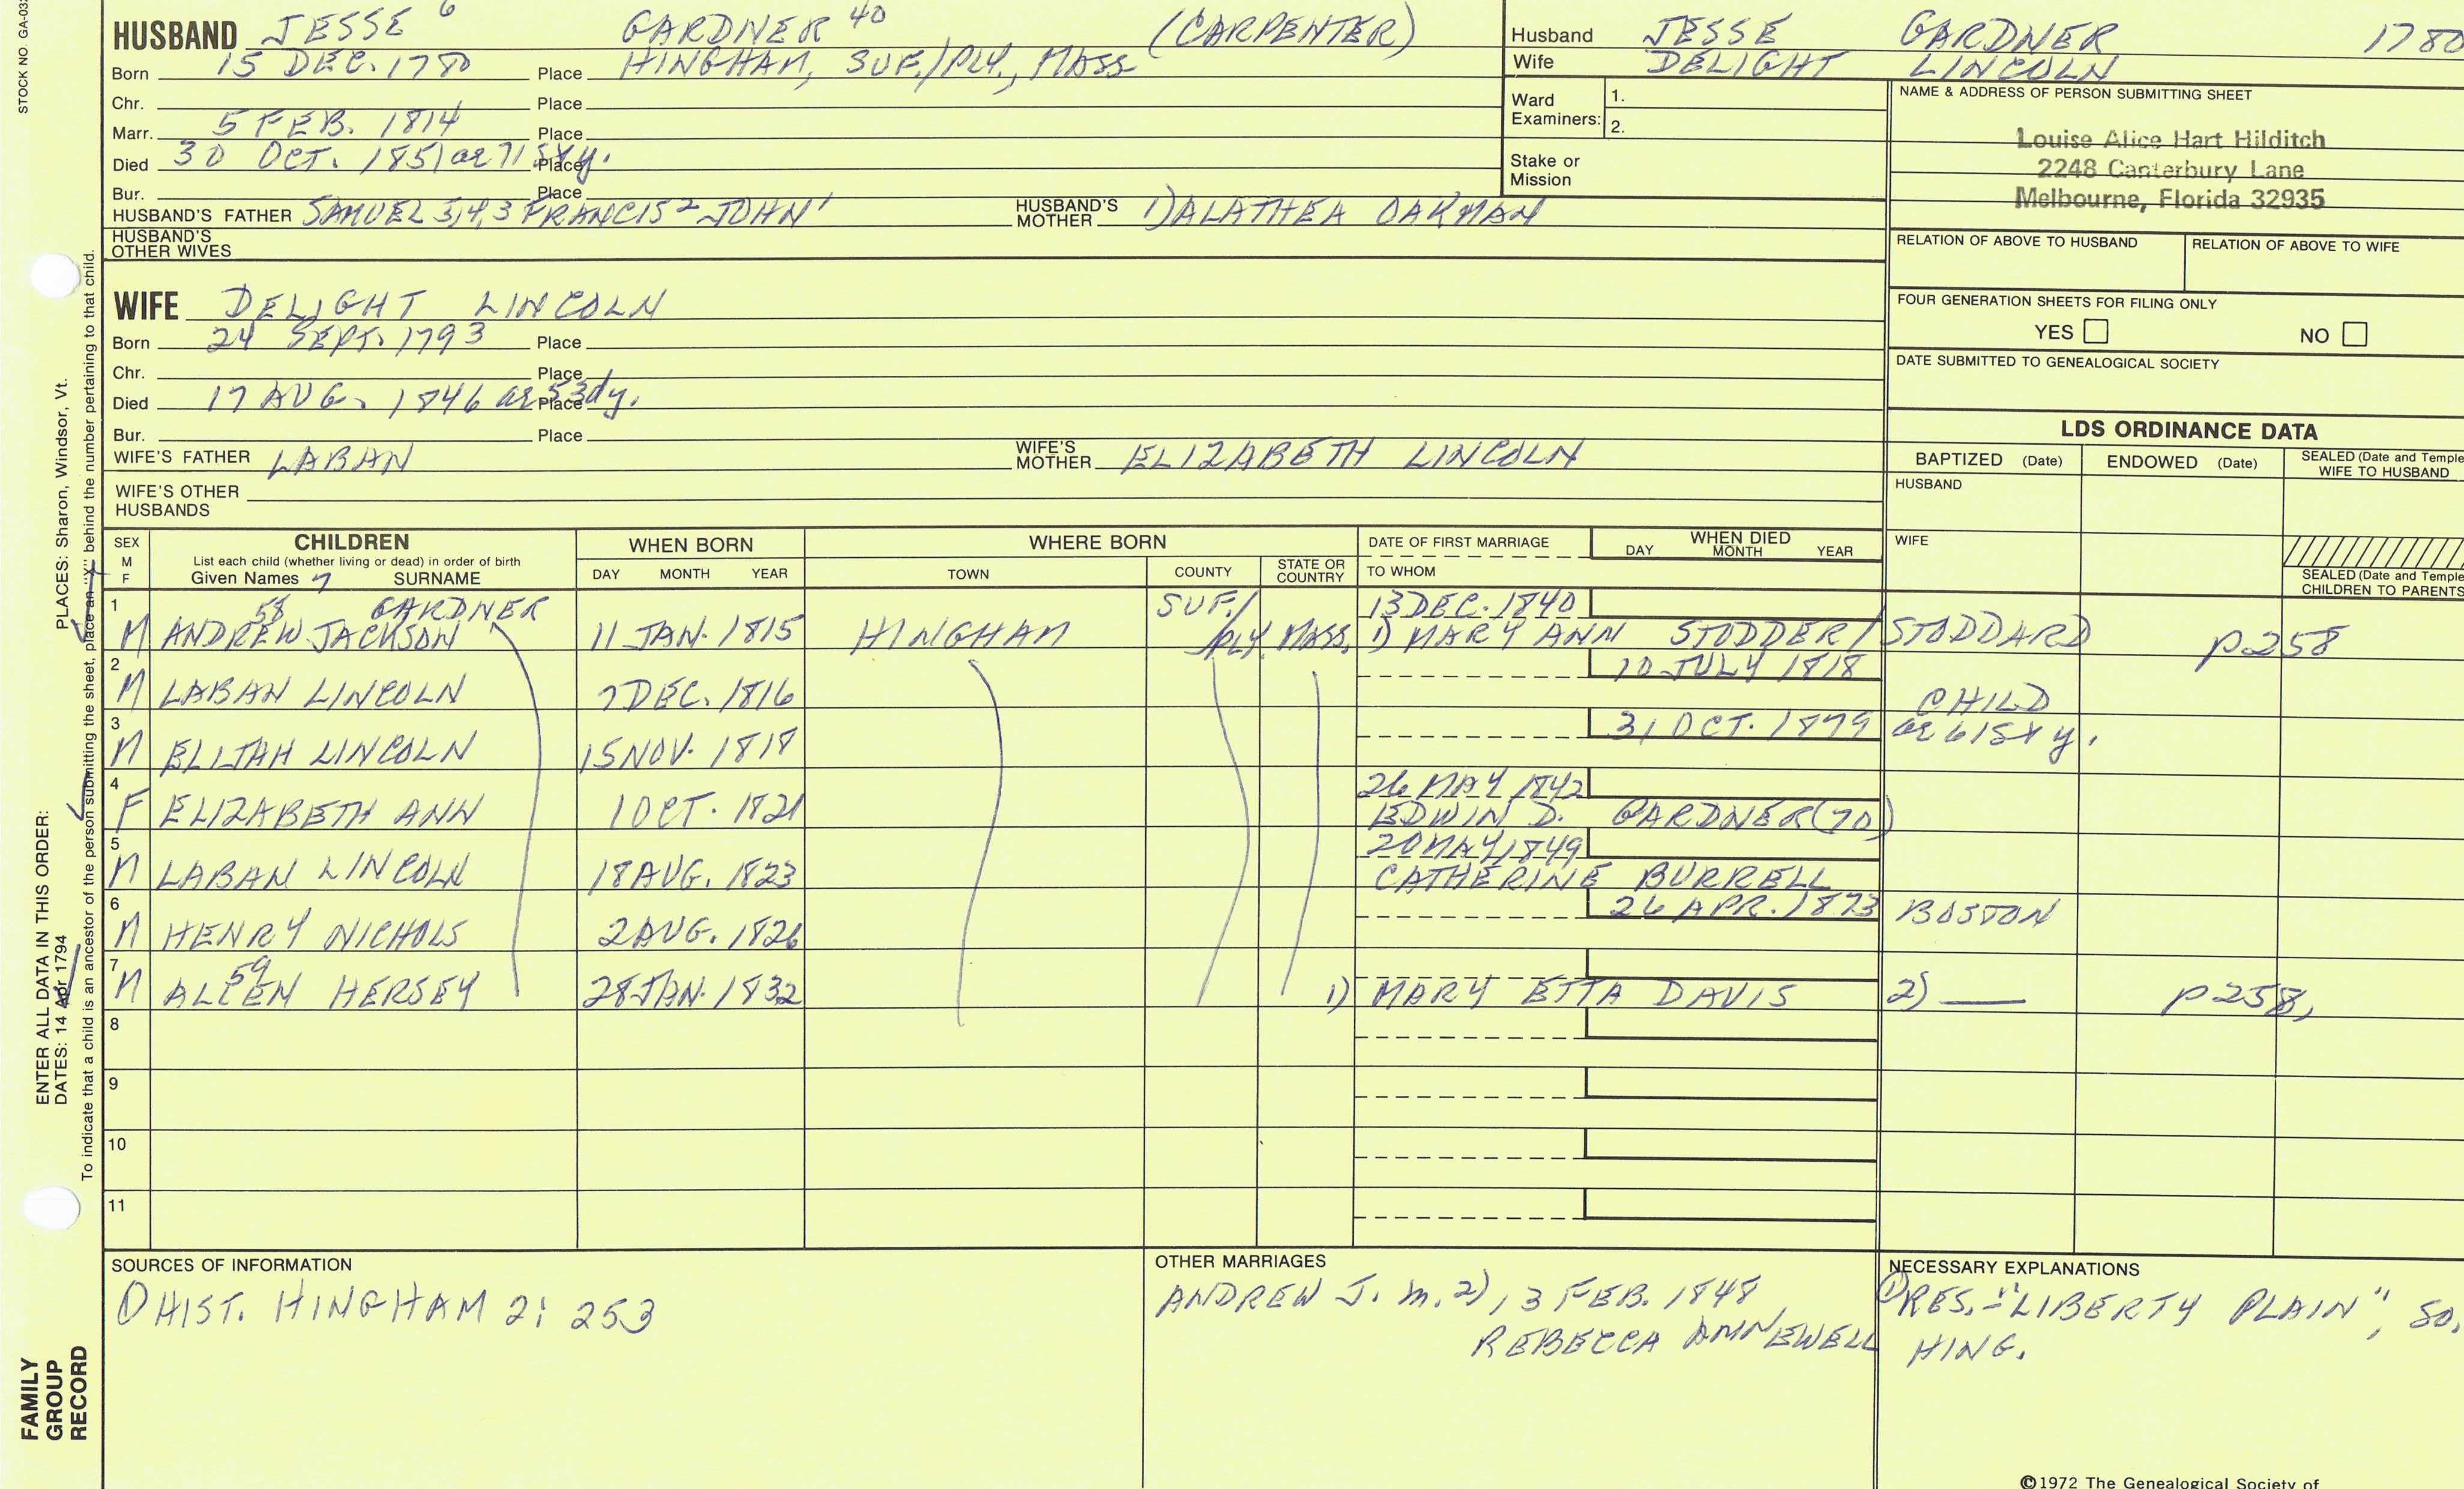 STOCK NO. GA-03
HUSBAND JESSE 6 GARDNER 40 (CARPENTER)
Born 15 DEC. 1780 Place HINGHAM, SUF./PLY., MASS
Chr. Place
Marr. 5 FEB. 1814 Place
Died 30 OCT. 1851 ae 71 Place
Bur. Place
HUSBAND'S FATHER SAMUEL 5,4,3 FRANCIS 2 JOHN 1 HUSBAND'S MOTHER 1) ALATHEA OAKMAN
HUSBAND'S OTHER WIVES
Husband JESSE GARDNER 1780
Wife DELIGHT LINCOLN
Ward Examiners: 1.
2.
Stake or Mission
NAME & ADDRESS OF PERSON SUBMITTING SHEET
Louise Alice Hart Hilditch
2248 Canterbury Lane
Melbourne, Florida 32935
RELATION OF ABOVE TO HUSBAND RELATION OF ABOVE TO WIFE
FOUR GENERATION SHEETS FOR FILING ONLY
YES NO
DATE SUBMITTED TO GENEALOGICAL SOCIETY
WIFE DELIGHT LINCOLN
Born 24 SEPT. 1793 Place
Chr. Place
Died 17 AUG. 1846 ae 53 Place
Bur. Place
WIFE'S FATHER LABAN WIFE'S MOTHER ELIZABETH LINCOLN
WIFE'S OTHER HUSBANDS
LDS ORDINANCE DATA
BAPTIZED (Date) ENDOWED (Date) SEALED (Date and Temple
WIFE TO HUSBAND
HUSBAND
WIFE
SEALED (Date and Temple
CHILDREN TO PARENTS
SEX M F CHILDREN WHEN BORN WHERE BORN DATE OF FIRST MARRIAGE WHEN DIED
List each child (whether living or dead) in order of birth
Given Names 7 SURNAME DAY MONTH YEAR TOWN COUNTY STATE OR COUNTRY TO WHOM DAY MONTH YEAR
1 58 GARDNER SUF./ 13 DEC. 1840
M ANDREW JACKSON 11 JAN. 1815 HINGHAM PLY MASS. 1) MARY ANN STODDER/STODDARD p258
2 10 JULY 1818
M LABAN LINCOLN 7 DEC. 1816 CHILD
3 31 OCT. 1879 ae 61
M ELIJAH LINCOLN 15 NOV. 1818
4 26 MAY 1842
F ELIZABETH ANN 1 OCT. 1821 EDWIN D. GARDNER (70)
5 20 MAY 1849
M LABAN LINCOLN 18 AUG. 1823 CATHERINE BURRELL
6 26 APR. 1873 BOSTON
M HENRY NICHOLS 2 AUG. 1826
7 59
M ALLEN HERSEY 28 JAN. 1832 1) MARY ETTA DAVIS 2) — p258,
8
9
10
11
SOURCES OF INFORMATION
① HIST. HINGHAM 2: 253
OTHER MARRIAGES
ANDREW J. m. 2), 3 FEB. 1848
REBECCA ANN NEWELL
NECESSARY EXPLANATIONS
① RES. - "LIBERTY PLAIN", SO.
HING.
©1972 The Genealogical Society of
ENTER ALL DATA IN THIS ORDER:
DATES: 14 Apr 1794
PLACES: Sharon, Windsor, Vt.
To indicate that a child is an ancestor of the person submitting the sheet, place an "X" behind the number pertaining to that child.
FAMILY
GROUP
RECORD